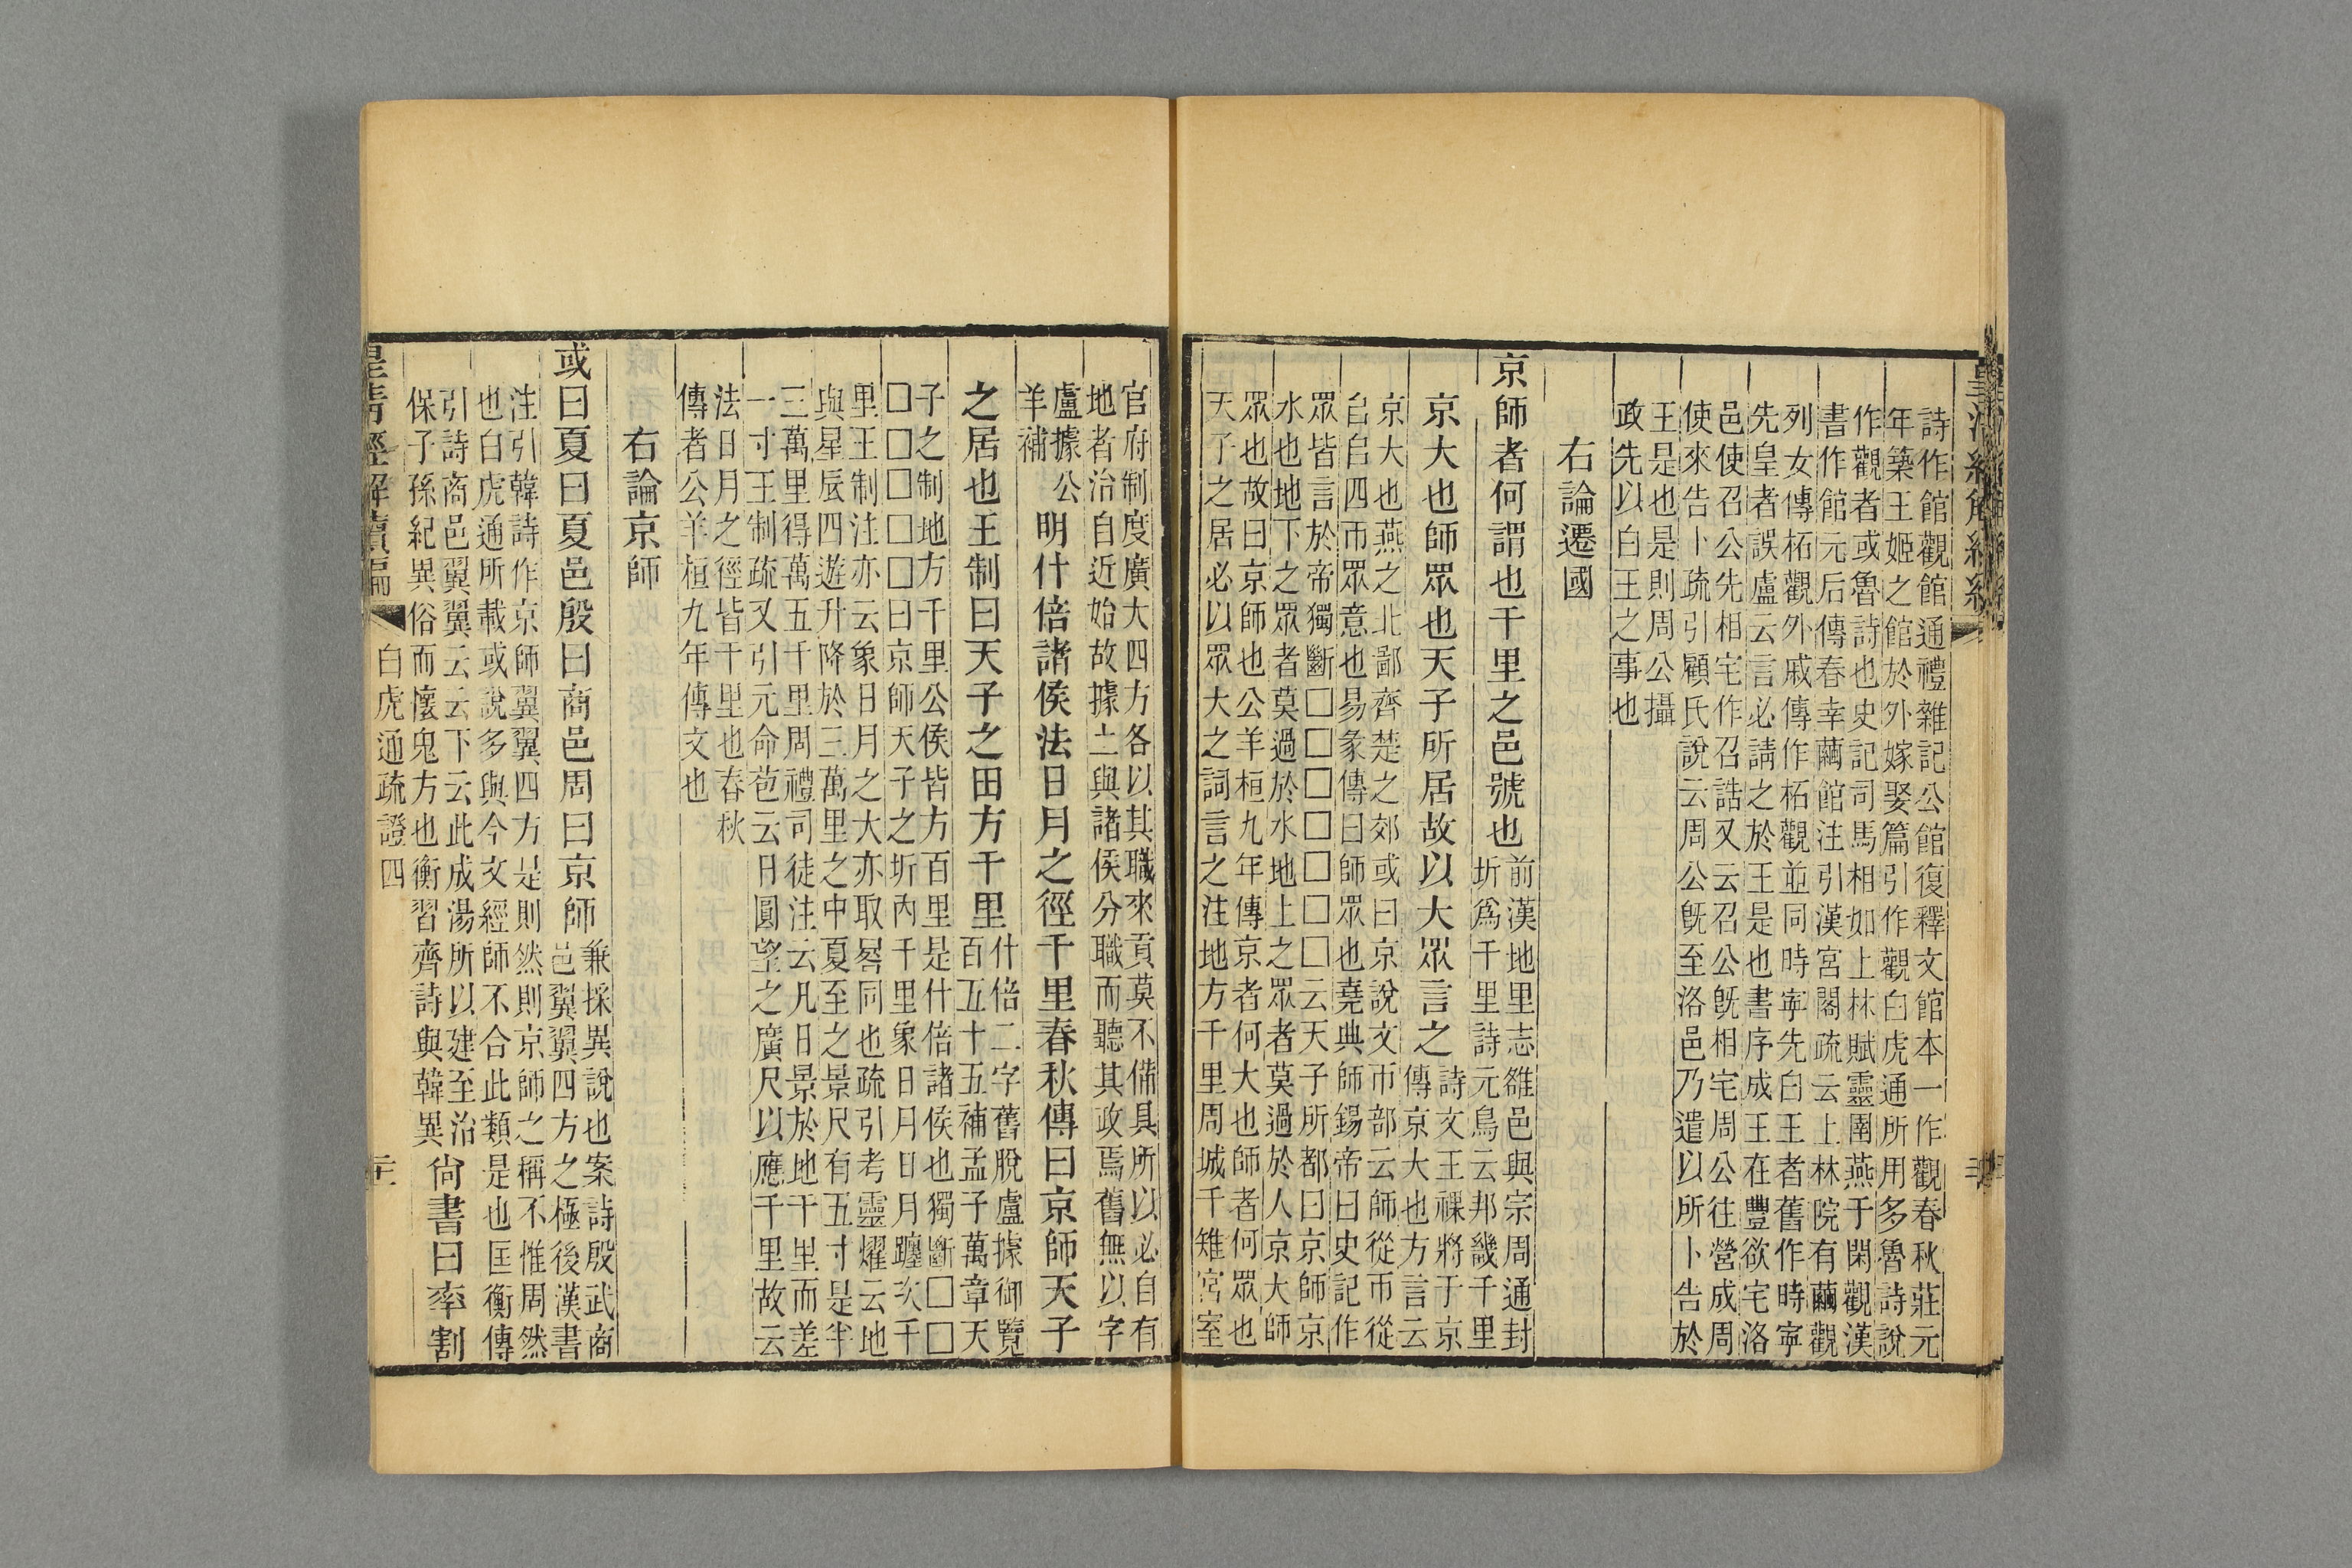 詩作館觀館通禮雜記公館復釋文館本一作觀春秋莊元
年築王姬之館於外嫁娶篇引作觀白虎通所用多魯詩說
作觀者或魯詩也史記司馬相如上林賦靈圉燕于閑觀漢
書作館元后傳春幸繭館注引漢宮閣疏云上林院有繭觀
列女傳柘觀外戚傳作柘觀並同時寕先白王者舊作時寕
先皇者誤盧云言必請之於王是也書序成王在豐欲宅洛
邑使召公先相宅作召誥又云召公旣相宅周公往營成周
使來告卜疏引顧氏說云周公旣至洛邑乃遣以所卜告於
王是也是則周公攝
政先以白王之事也
右論遷國
京師者何謂也千里之邑號也前漢地里志雒邑與宗周通封
圻爲千里詩元鳥云邦畿千里
京大也師眾也天子所居故以大眾言之詩文王祼將于京
傳京大也方言云
京大也燕之北鄙齊楚之郊或曰京說文帀部云師從帀從
𠂤𠂤四帀眾意也易彖傳曰師眾也堯典師錫帝曰史記作
眾皆言於帝獨斷□□□□□□□云天子所都曰京師京
水也地下之眾者莫過於水地上之眾者莫過於人京大師
眾也故曰京師也公羊桓九年傳京者何大也師者何眾也
天子之居必以眾大之詞言之注地方千里周城千雉宮室
官府制度廣大四方各以其職來貢莫不備具所以必自有
地者治自近始故據土與諸侯分職而聽其政焉舊無以字
盧據公
羊補明什倍諸侯法日月之徑千里春秋傳曰京師天子
之居也王制曰天子之田方千里什倍二字舊脫盧據御覽
百五十五補孟子萬章天
子之制地方千里公侯皆方百里是什倍諸侯也獨斷□□
□□□□□曰京師天子之圻內千里象日月日月躔次千
里王制注亦云象日月之大亦取晷同也疏引考靈燿云地
與星辰四遊升降於三萬里之中夏至之景尺有五寸是半
三萬里得萬五千里周禮司徒注云凡日景於地千里而差
一寸王制疏又引元命苞云日圓望之廣尺以應千里故云
法日月之徑皆千里也春秋
傳者公羊桓九年傳文也
右論京師
或曰夏曰夏邑殷曰商邑周曰京師兼採異說也案詩殷武商
邑翼翼四方之極後漢書
注引韓詩作京師翼翼四方是則然則京師之稱不惟周然
也白虎通所載或說多與今文經師不合此類是也匡衡傳
引詩商邑翼翼云云下云此成湯所以建至治
保子孫紀異俗而懷鬼方也衡習齊詩與韓異尙書曰率割
皇清經解續編
白虎通疏證四